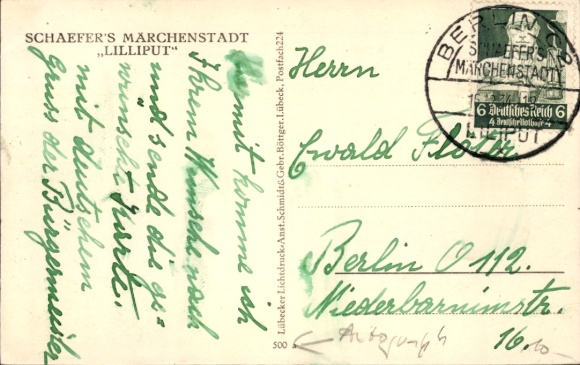 SCHAEFER'S MÄRCHENSTADT
„LILLIPUT"
Hiermit komme ich
Ihrem Wunsche nach
und sende die ge-
wünschte Karte.
mit deutschem
Gruss der Bürgermeister
Lübecker Lichtdruck-Anst. Schmidt & Gebr. Böttger, Lübeck, Postfach 224
500 a
BERLIN C2
SCHAEFER'S
MÄRCHENSTADT
LILIPUT
6 Deutsches Reich 6
4 Deutsche Nothilfe 4
Herrn
Ewald
Berlin O 112.
Niederbarnimstr.
16.
Autograph